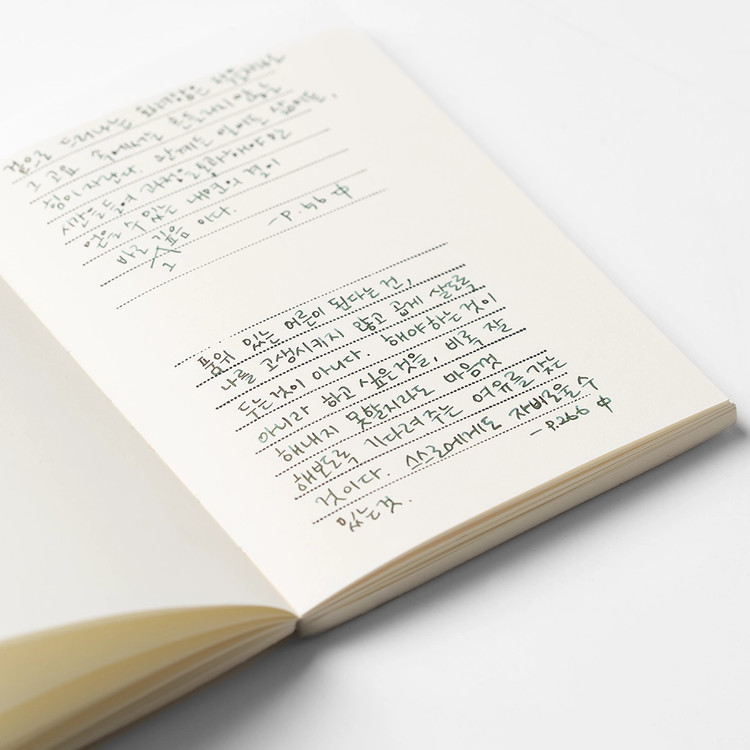 겉으로 드러나는 화려함은
그 고요 속에서는 흔들리지 않는
힘이 자란다. 함께는 얻어는
시간들의 과정을 통과해야만
얻을 수 있는 내면의 결이
바로 그 깊음 이다. -P.56 中
품위 있는 어른이 된다는 건,
나를 고생시키지 않고 곱게 살도록
두는것이 아니다. 해야하는것이
아니라 하고 싶은것을, 비록 잘
해내지 못할지라도 마음껏
해보도록 기다려 주는 여유를 갖는
것이다. 스스로에게도 자비로울 수
있는것. -P.266 中